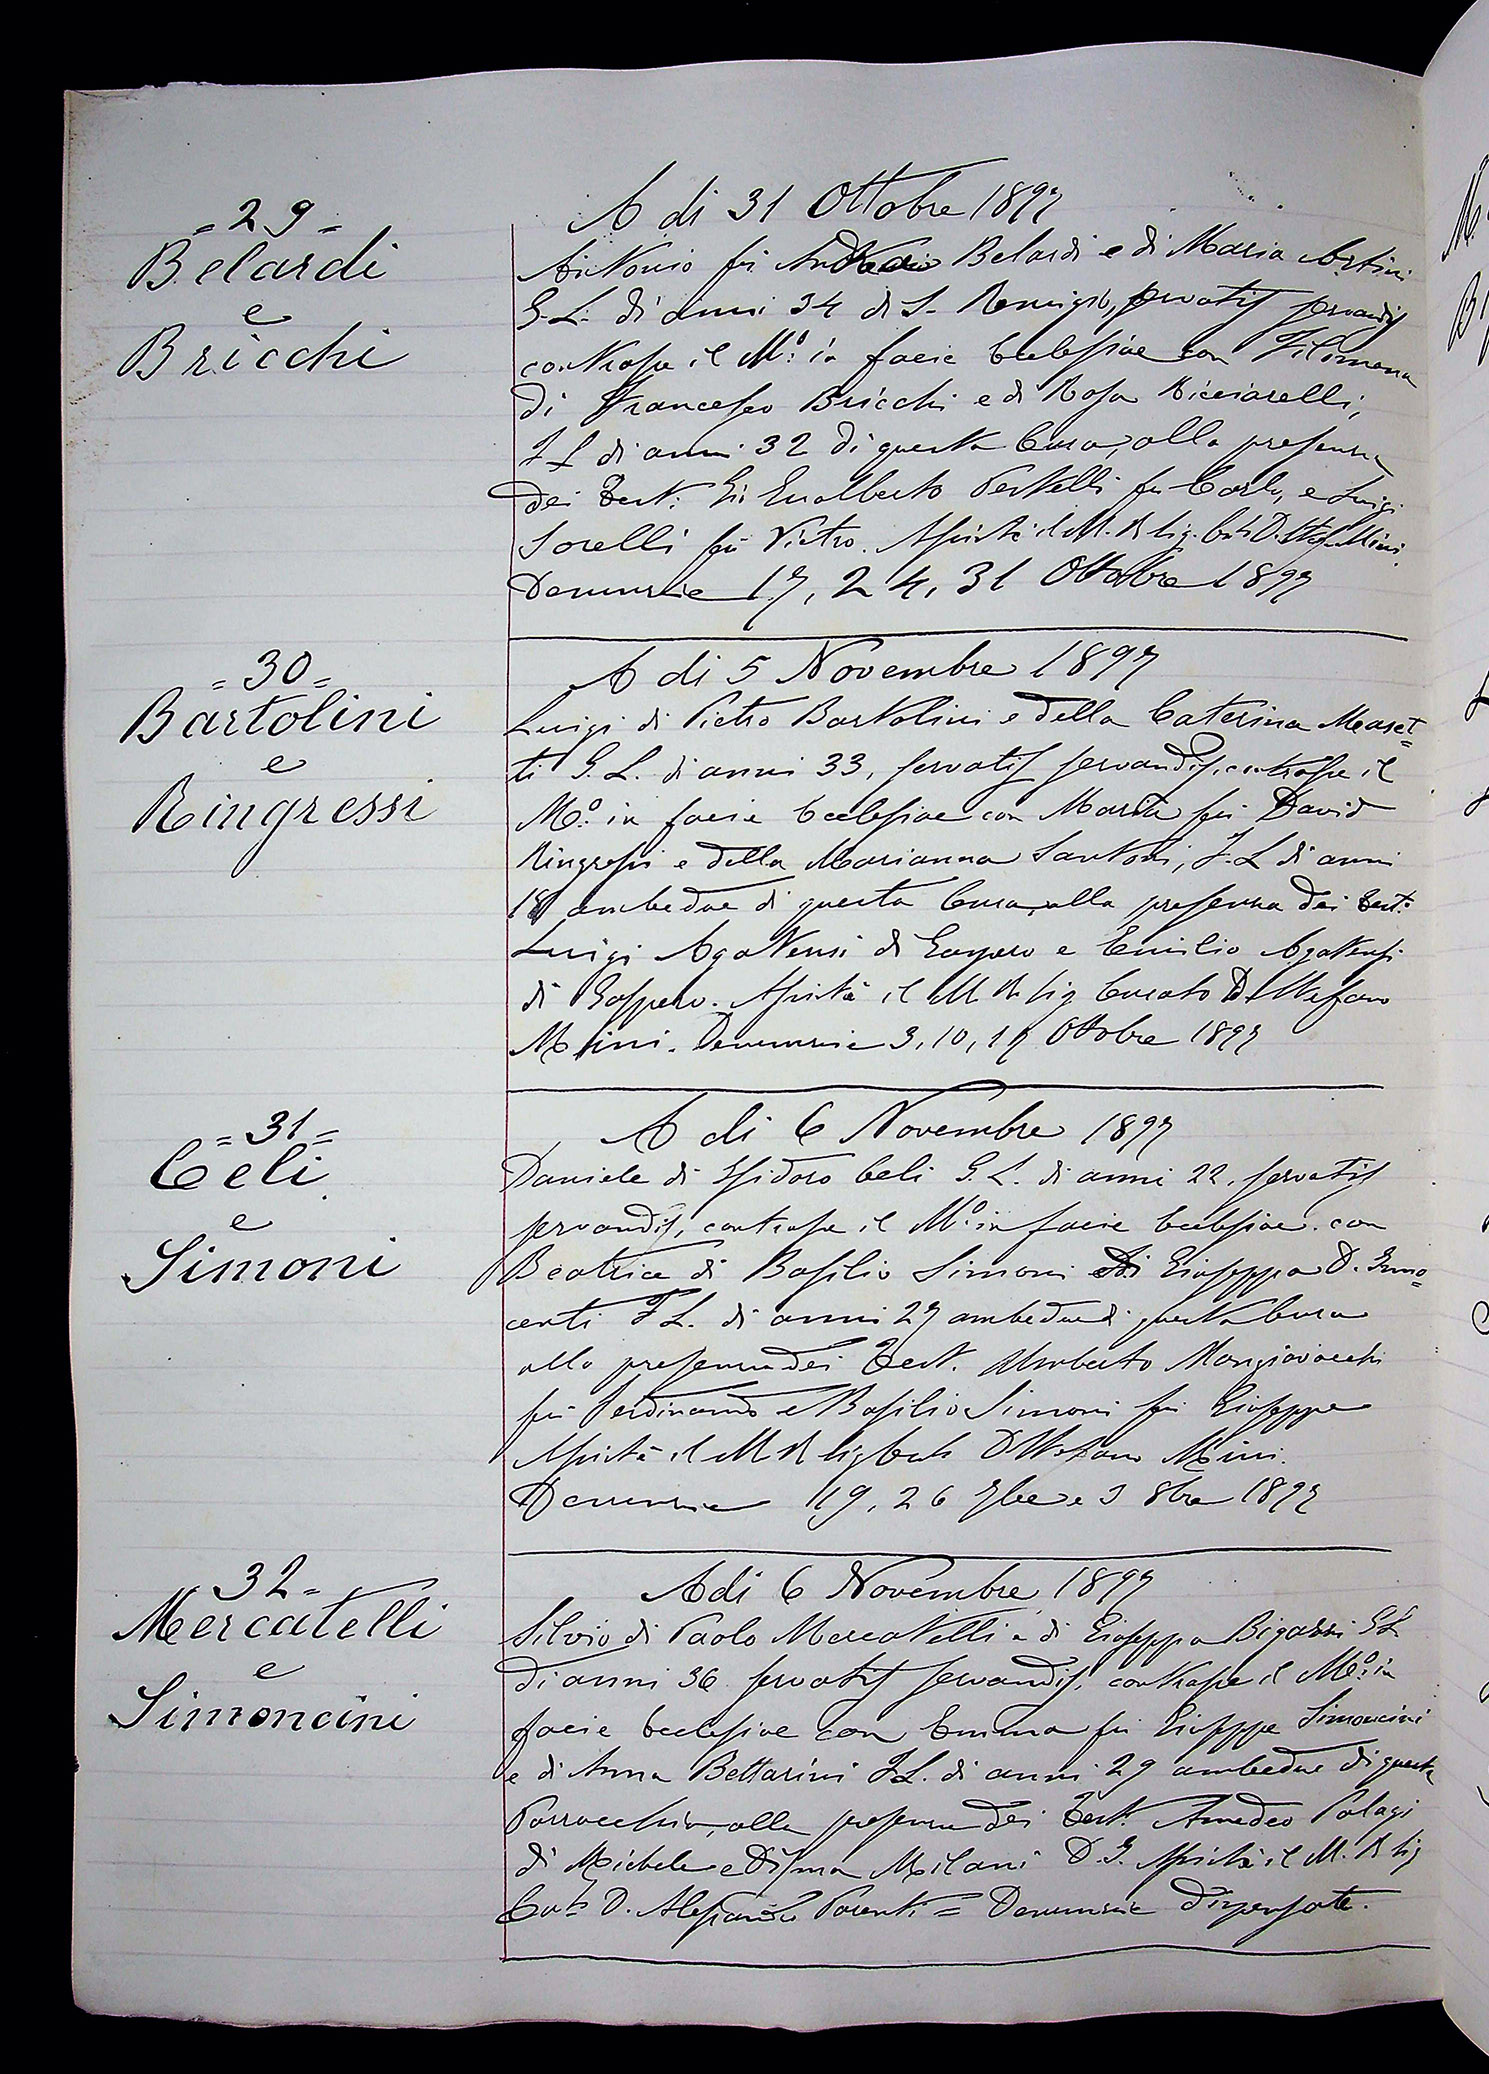 = 29 =
Belardi
e
Bricchi
A di 31 Ottobre 1897
Antonio fu Belardi e di Maria
G. L. di anni 34 di S. Remigio, servatis servandis
contrasse il M.º in facie Ecclesiae con Filomena
di Francesco Bricchi e di Rosa Ricciarelli,
F L di anni 32 di questa Cura, alla presenza
dei Test: Gio Gualberto Pestelli fu Carlo, e Luigi
Sorelli fu Pietro. Assistè il M. R Sig. Cto D. Stef. Mini.
Denunzie 17, 24, 31 Ottobre 1897
= 30 =
Bartolini
e
Ringressi
A di 5 Novembre 1897
Luigi di Pietro Bartolini e della Caterina Maset=
ti G. L. di anni 33, servatis servandis, contrasse il
M.º in facie Ecclesiae con Maria fu David
Ringressi e della Marianna Santoni, F. L di anni
18 ambedue di questa Cura, alla presenza dei Test:
Luigi Agatensi di Gaspero e Emilio Agatensi
di Gaspero. Assistè il M R Sig Curato D. Stefano
Mini. Denunzie 3, 10, 17 Ottobre 1897
= 31 =
Celi
e
Simoni
A di 6 Novembre 1897
Daniele di Isidoro Celi G. L. di anni 22, servatis
servandis, contrasse il M.º in facie Ecclesiae con
Beatrice di Basilio Simoni e di Giuseppa D. Inno=
centi F L. di anni 27 ambedue di questa Cura
alla presenza dei Test. Umberto Mangiavacchi
fu Ferdinando e Basilio Simoni fu Giuseppe
Assistè il M R Sig Cto D Stefano Mini.
Denunzie 19, 26 7bre e 3 8bre 1897
32 =
Mercatelli
e
Simoncini
A di 6 Novembre 1897
Silvio di Paolo Mercatelli e di Giuseppa Bigazzi G L
di anni 36 servatis servandis, contrasse il M.º in
facie Ecclesiae con Emma fu Giuseppe Simoncini
e di Anna Bettarini F L. di anni 29 ambedue di questa
Parrocchia, alla presenza dei Test. Amedeo Palagi
di Michele e Disma Milani D. G. Assistè il M. R Sig
Cto D. Alessandro Parenti = Denunzie dispensate.